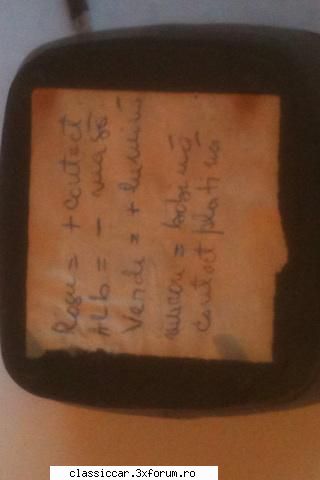 Rosu = + contact
Alb = - masă
Verde = + lumină
maron = bobină
contact platină
classiccar.3xforum.ro